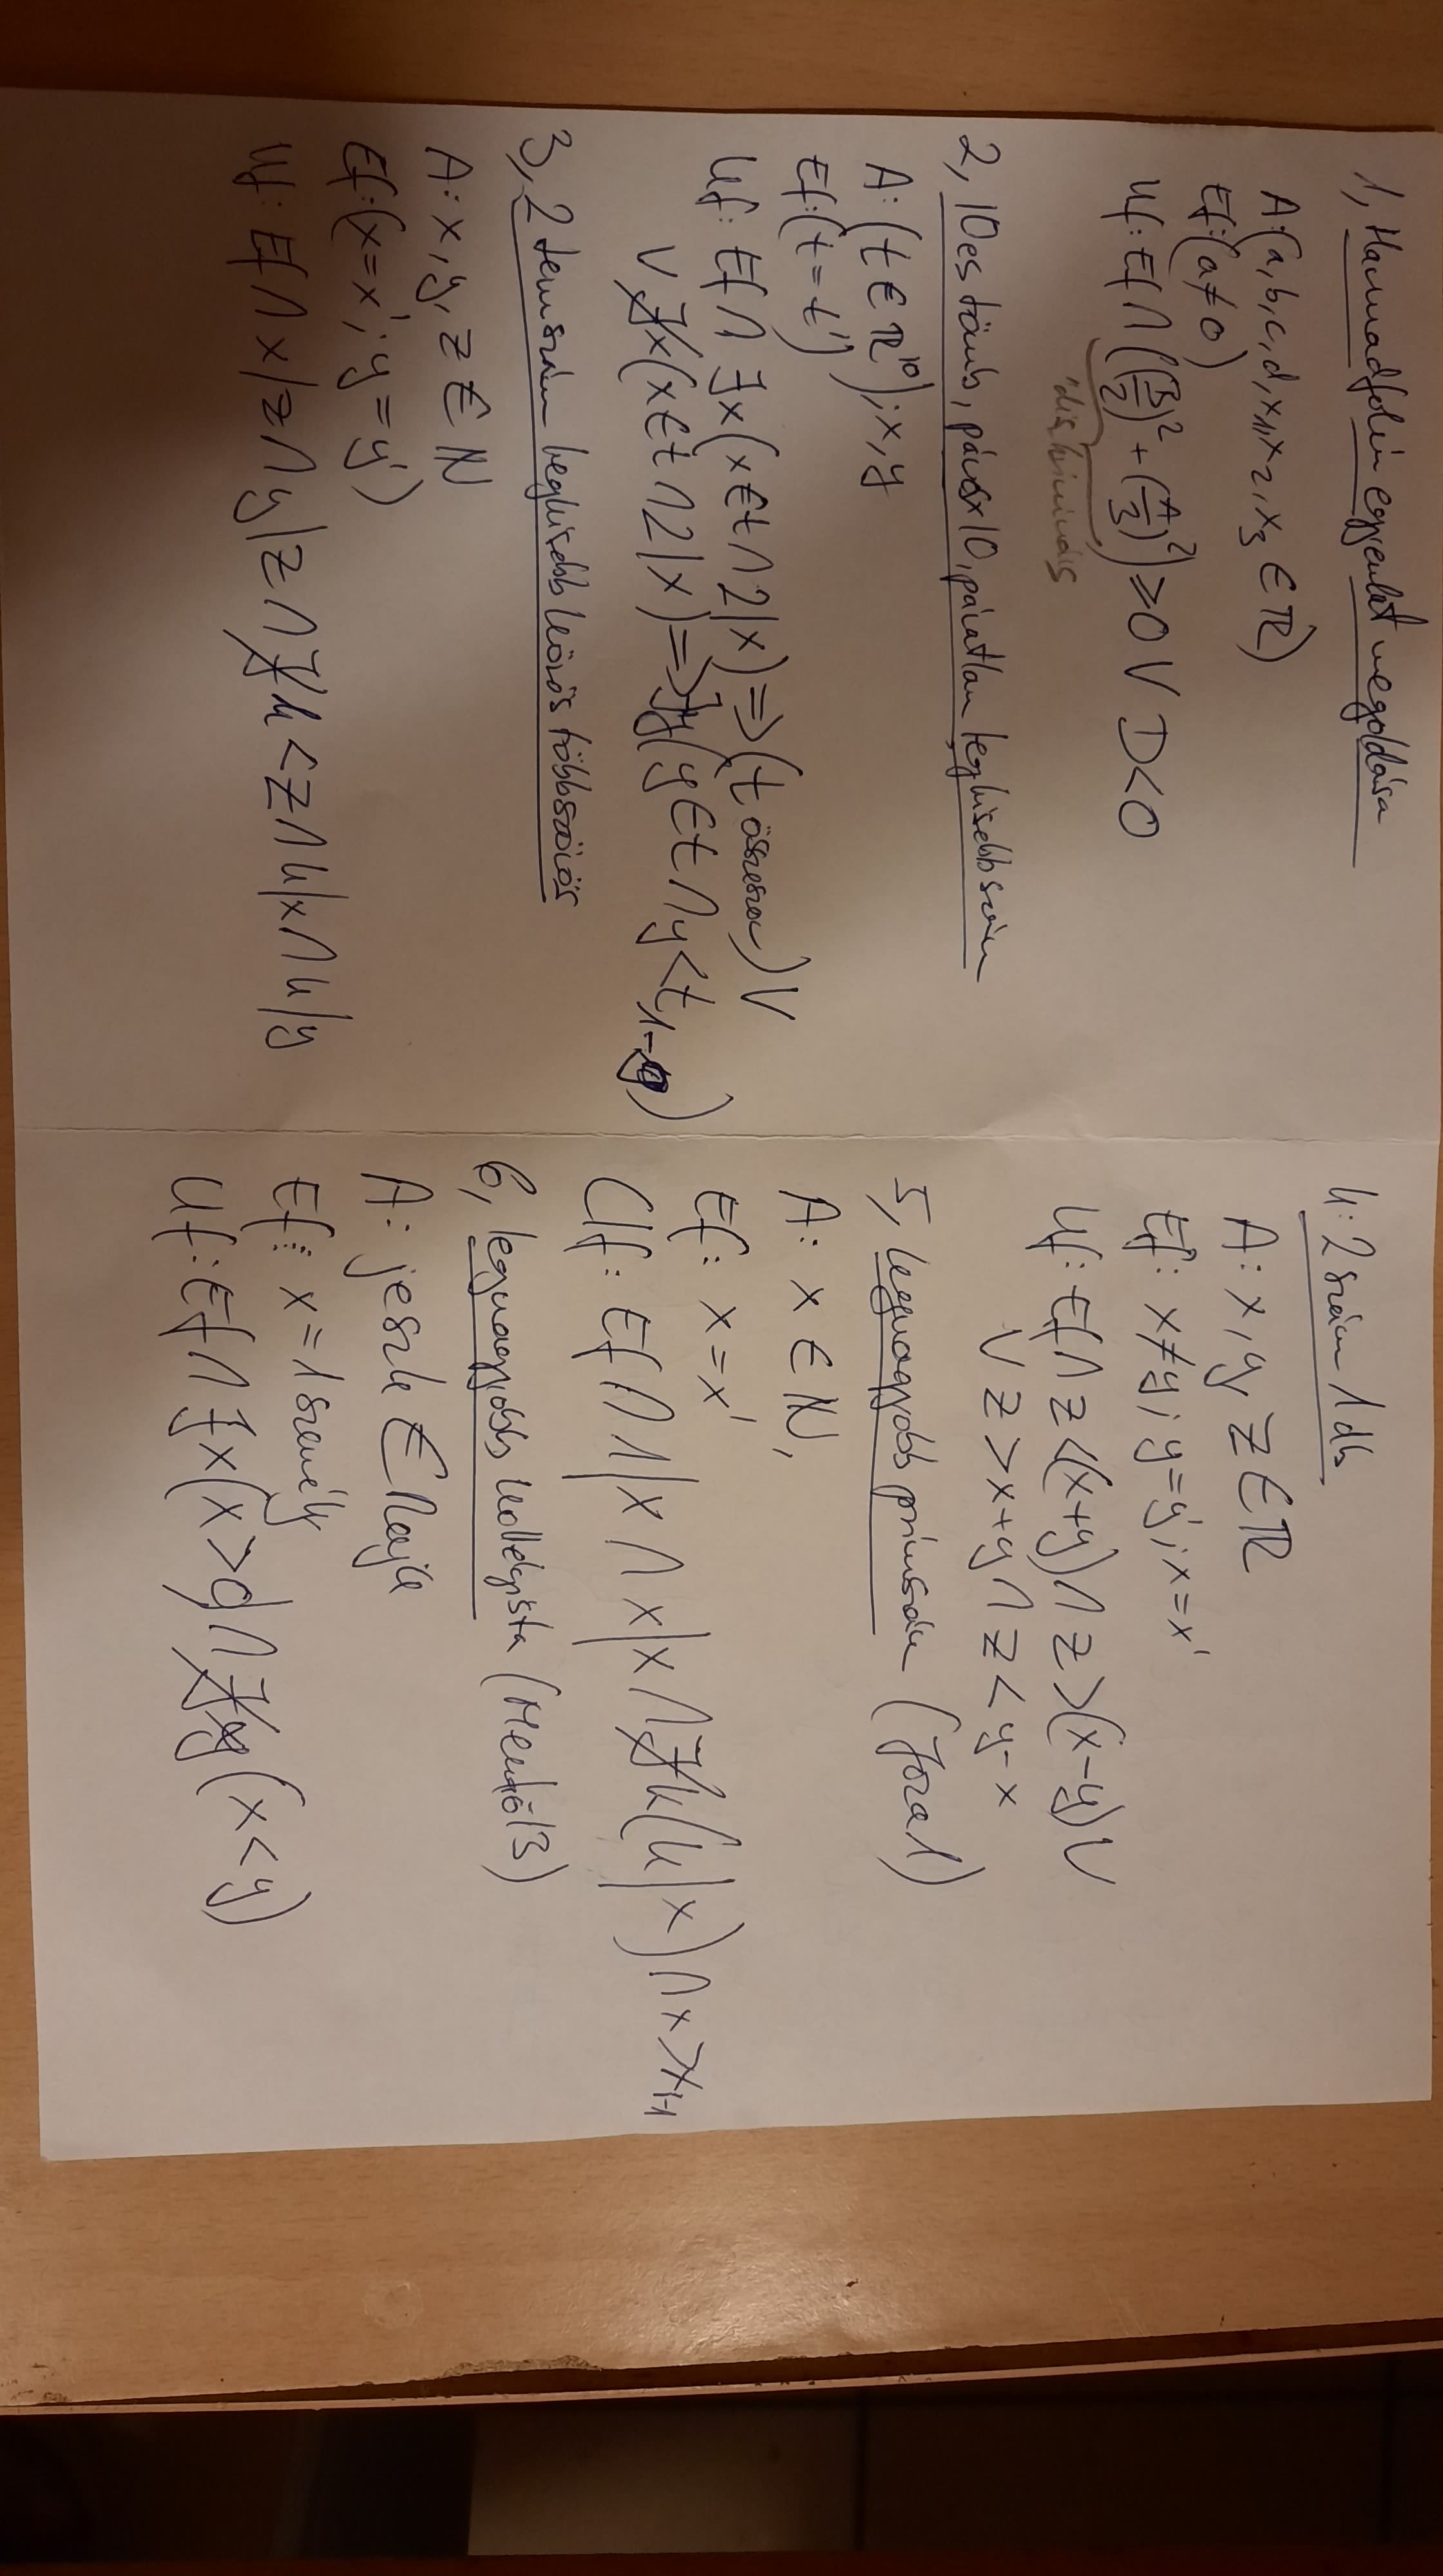 1, Harmadfokú egyenlet megoldása
A:(a,b,c,d,x1,x2,x3 ∈ R)
Ef:(a≠0)
Uf: Ef ∧ ((B/2)² + (A/3)²) ≥ 0 ∨ D<0
2, 10es tömb, páros x10, páratlan legkisebb szám
A: (t ∈ R¹⁰); x, y
Ef:(t = t')
Uf: Ef ∧ ∃x(x∈t ∧ 2|x) => (t összes ∨
∨ ∄x(x∈t ∧ 2|x) => ∃y(y∈t ∧ y<t1-9)
3, 2 term.szám legkisebb közös többszöröse
A: x, y, z ∈ N
Ef:(x=x'; y=y')
Uf: Ef ∧ x|z ∧ y|z ∧ ∄k<z ∧ k|x ∧ k|y
4: 2 szám 1 db
A: x, y, z ∈ R
Ef: x≠y; y=y'; x=x'
Uf: Ef ∧ z<(x+y) ∧ z>(x-y) ∨
∨ z>x+y ∧ z<y-x
5, Legnagyobb prímszám
A: x ∈ N,
Ef: x=x'
Uf: Ef ∧ 1|x ∧ x|x ∧ ∄k(k|x) ∧ x>xi-1
6, legnagyobb kollégista
A: jeszk ∈ Nagyk
Ef: x = 1 személy
Uf: Ef ∧ ∃x(x>d ∧ ∄y(x<y)